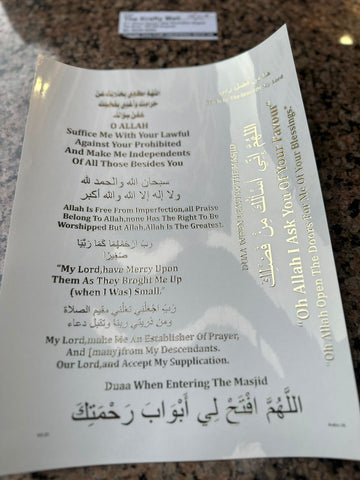 The Krafty Mall
اللهم اكفني بحلالك عن
حرامك وأغنني بفضلك
عمن سواك
O ALLAH
Suffice Me With Your Lawful
Against Your Prohibited
And Make Me Independents
Of All Those Besides You
سبحان الله والحمد لله
ولا إله إلا الله والله أكبر
Allah Is Free From Imperfection,all Praise
Belong To Allah,none Has The Right To Be
Worshipped But Allah,Allah Is The Greatest.
رَبِّ ارْحَمْهُمَا كَمَا رَبَّيَانِي
صَغِيرًا
“My Lord,have Mercy Upon
Them As They Broght Me Up
(when I Was) Small.”
رَبِّ اجْعَلْنِي مُقِيمَ الصلاة
ومن ذريتي ربنا وتقبل دعاء
My Lord,make Me An Establisher Of Prayer,
And [many]from My Descendants.
Our Lord,and Accept My Supplication.
Duaa When Entering The Masjid
اللَّهُمَّ افْتَحْ لِي أَبْوَابَ رَحْمَتِكَ
هذا من فضل ربي
DUAA WHEN LEAVING THE MASJID
اللَّهُمَّ إِنِّي أَسْأَلُكَ مِنْ فَضْلِكَ
“Oh Allah I Ask You Of Your Favour”
“Oh Allah Open The Doors For Me Of Your Blessings.”